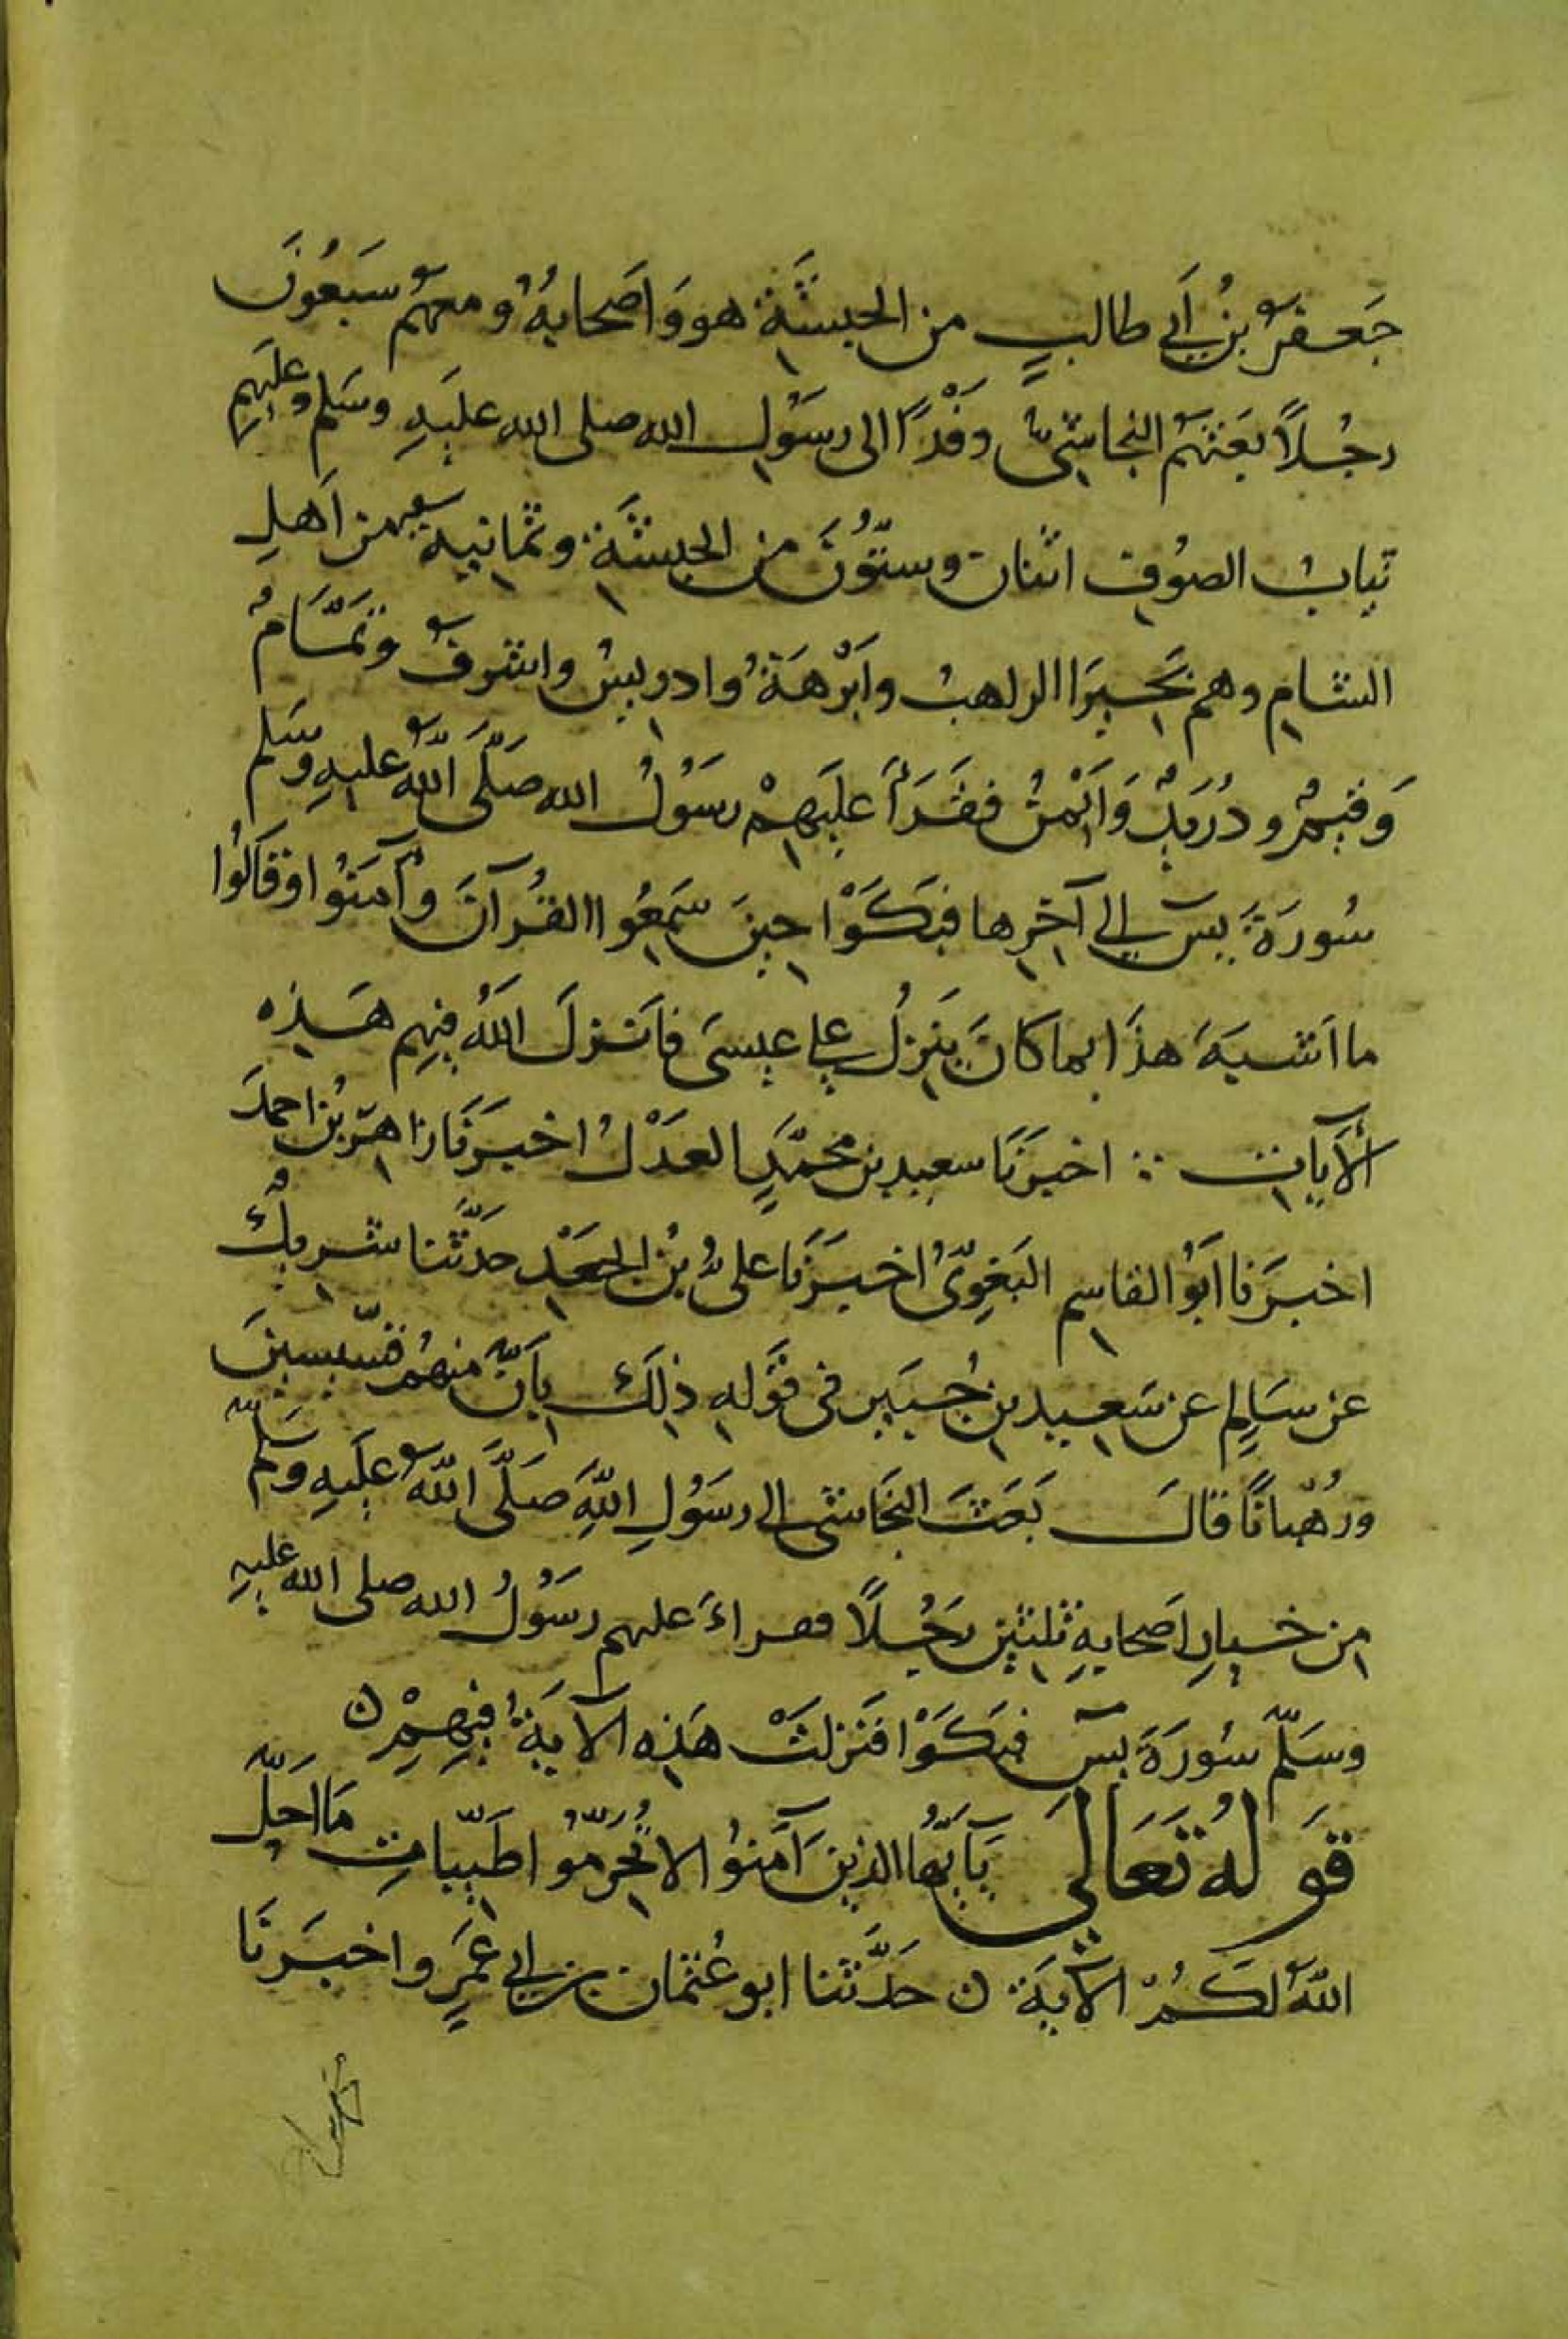 جَعفرُ بنُ اَبي طالبٍ من الحبشَةِ هو وَاَصحابهُ ومعهُم سَبعُونَ
رجُلاً بَعَثهُم النجاشيُّ وفْدًا الى رسَوُلِ الله صلى الله علَيهِ وسَلم وعلَيهِم
ثيابُ الصوُفِ اثنان وستّوُنَ من الحبشَةِ وثمانيه من اَهلِ
الشامِ وهم بَحيرَا الراهبُ واَبْرهَةُ وادريسُ واشرفُ وتَمَّامُ
وَقثيمُ ودُرَيدُ وَاَيْمنُ فقَرَاَ علَيهِمْ رسَوُلُ الله صَلَّى اللهُ عليهِ وسَلم
سُورَةَ يس الي آخرِها فبَكَوْا حينَ سَمعُوا القُرآنَ وآمَنوُا وقَالوُا
ما اَشبهَ هذَا بما كانَ يَنزِلُ على عيسَى فاَنزلَ اللهُ فيهِم هَذِه
الآيات ∴ اخبرَنَا سعيد بن محمَّدٍ العَدْلُ اخبَرنَا زاهرُ بنُ احمدَ
اخبرَنا اَبوُ القاسِم البَغويُّ اخبَرَنَا علىُّ بنُ الجَعْدِ حدَّثنا شريكُ
عن سَالِمٍ عن سَعيد بن جُبَيرٍ فى قَوَلهِ ذلكَ بِاَنَّ منهُم قسّيسينَ
ورُهْبانًا قالَ بَعَثَ النجَاشى الى رسَوُلِ اللهِ صَلَّى اللهُ علَيهِ وسَلَّم
من خيارِ اَصحابهِ ثلثينِ رَجُلاً فقراءَ علهم رسَوُلُ الله صلى الله عليهِ
وسَلّم سُورَةَ يسَ فبكَوْا فنَزلتْ هَذِه الآيَةُ فيهِمْ ن
قَولهُ تَعَالَي يَاَيُّها الذين آمَنوُا لا تُحرّموُا طَيّباتِ مَا اَحَلَّ
اللهُ لكُمْ الآيَة ن حَدَّثنا ابو عُثمان بن ابي عَمرٍ واخبَرنَا